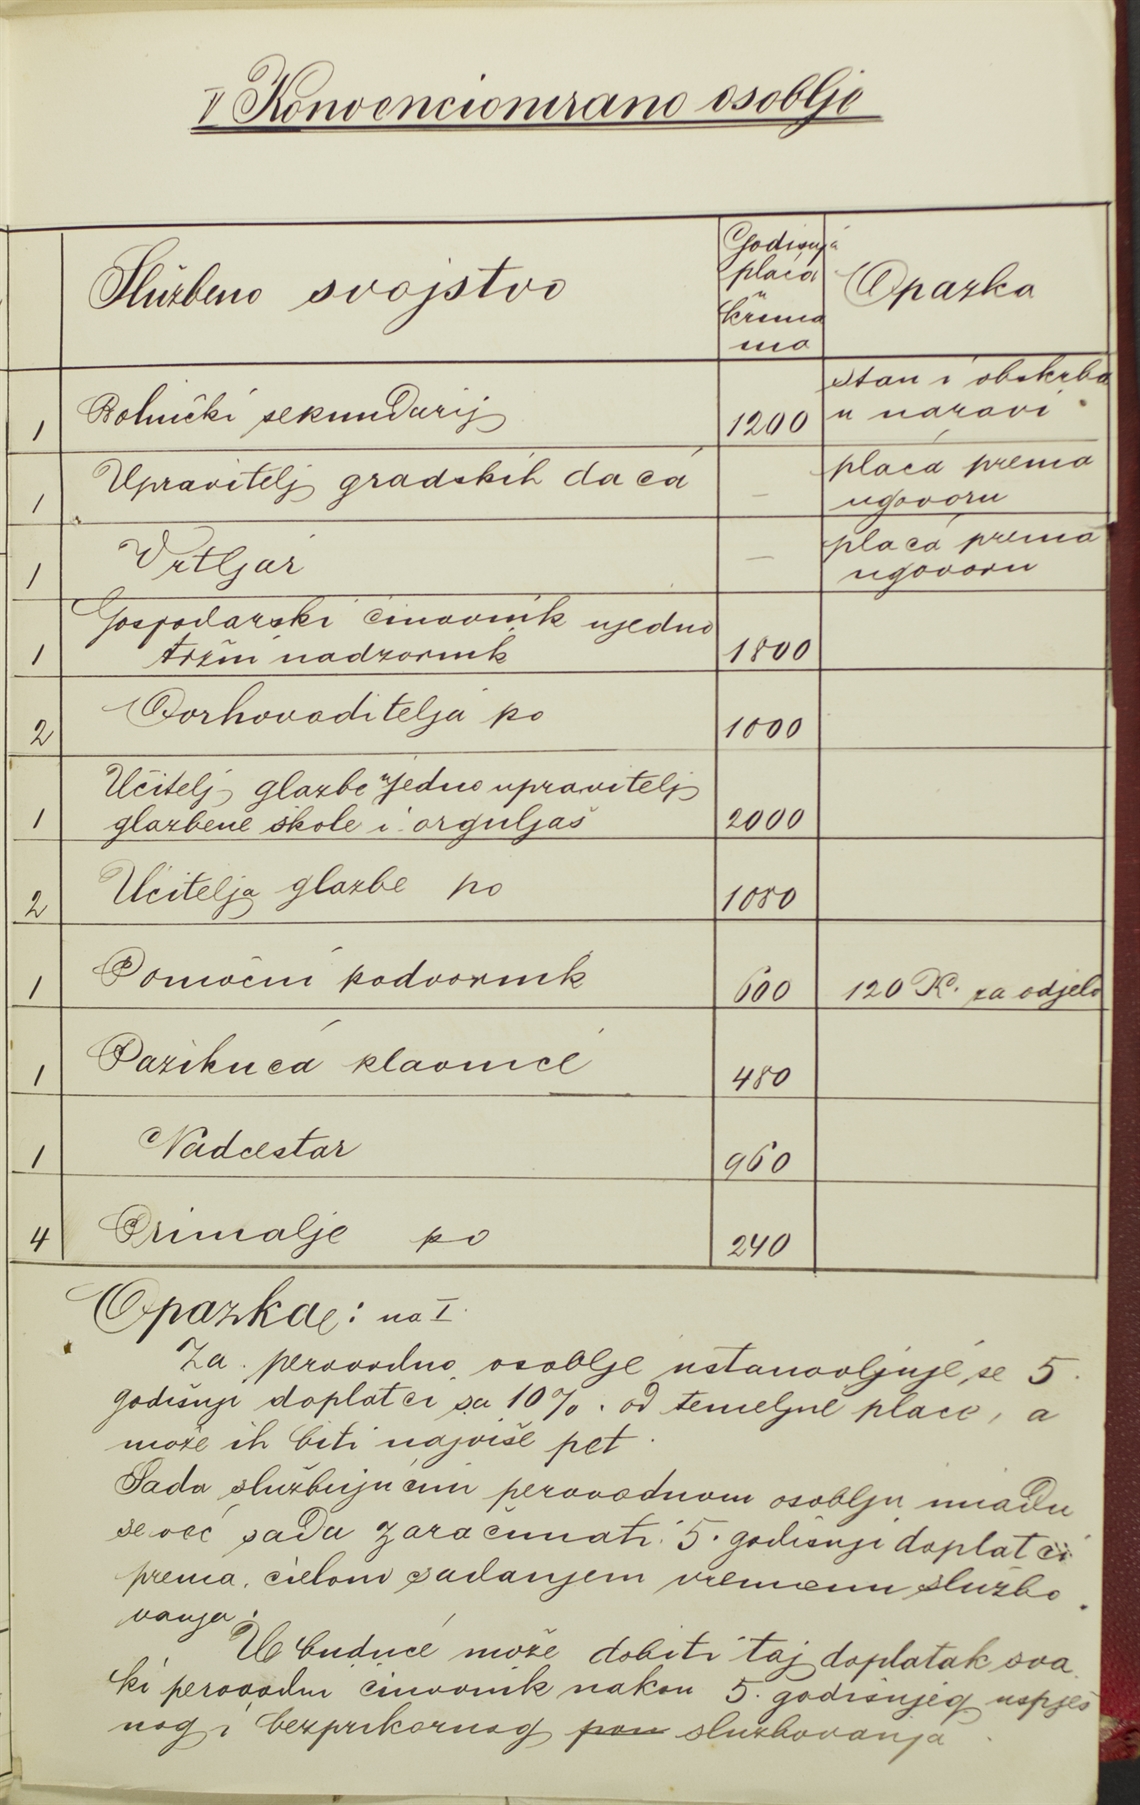 V Konvencionirano osoblje
Službeno svojstvo
Godišnja
plaća
u
kruna
ma
Opazka
1 Bolnički sekundarij 1200 stan i obskrba
u naravi
1 Upravitelj gradskih daća – plaća prema
ugovoru
1 Vrtljar – plaća prema
ugovoru
1 Gospodarski činovnik ujedno
tržni nadzornik 1800
2 Ovrhovoditelja po 1000
1 Učitelj glazbe ujedno upravitelj
glazbene škole i orguljaš 2000
2 Učitelja glazbe po 1080
1 Pomoćni podvornik 600 120 K. za odjelo
1 Pazikuća klaonice 480
1 Nadcestar 960
4 Primalje po 240
Opazka: na I.
Za perovodno osoblje ustanovljuje se 5
godišnji doplatci sa 10% od temeljne plaće, a
može ih biti najviše pet.
Sada službujućim perovodnom osoblju imadu
se već sada zaračunati 5. godišnji doplatci
prema cielom sadanjem vremenu službo
vanja.
U buduće može dobiti taj doplatak sva
ki perovodni činovnik nakon 5. godišnjeg uspješ
nog i bezprikornog službovanja